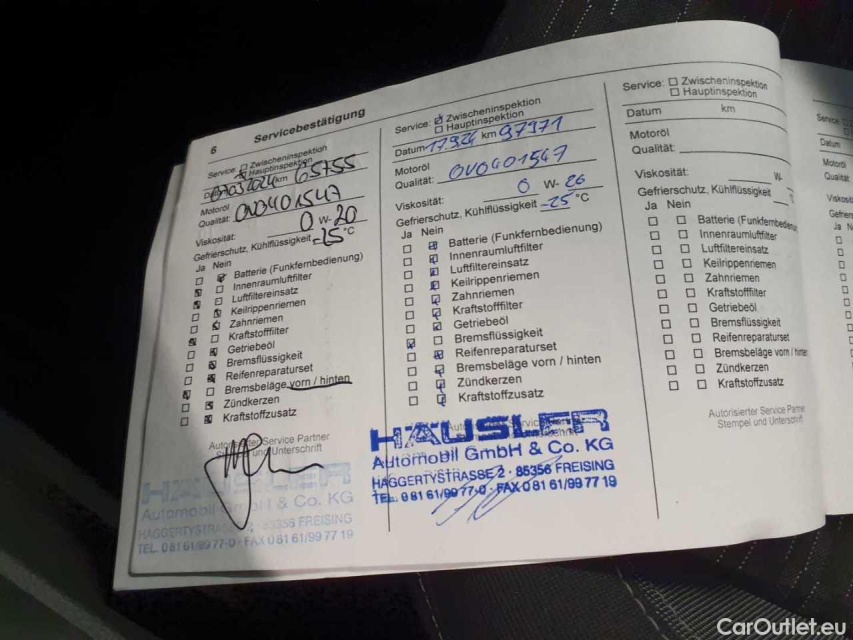 6 Servicebestätigung
Service: Zwischeninspektion
Hauptinspektion
07032024 km 65755
Motoröl
Qualität: 0V0401547
Viskosität: 0 W- 20
Gefrierschutz, Kühlflüssigkeit -25 °C
Ja Nein
Batterie (Funkfernbedienung)
Innenraumluftfilter
Luftfiltereinsatz
Keilrippenriemen
Zahnriemen
Kraftstofffilter
Getriebeöl
Bremsflüssigkeit
Reifenreparaturset
Bremsbeläge vorn / hinten
Zündkerzen
Kraftstoffzusatz
Autorisierter Service Partner
Stempel und Unterschrift
HÄUSLER
Automobil GmbH & Co. KG
HAGGERTYSTRASSE 2 · 85356 FREISING
TEL. 0 81 61/99 77-0 · FAX 0 81 61/99 77 19
Service: Zwischeninspektion
Hauptinspektion
Datum 17924 km 97971
Motoröl
Qualität: 0V0401547
Viskosität: 0 W- 20
Gefrierschutz, Kühlflüssigkeit -25 °C
Ja Nein
Batterie (Funkfernbedienung)
Innenraumluftfilter
Luftfiltereinsatz
Keilrippenriemen
Zahnriemen
Kraftstofffilter
Getriebeöl
Bremsflüssigkeit
Reifenreparaturset
Bremsbeläge vorn / hinten
Zündkerzen
Kraftstoffzusatz
HÄUSLER
Automobil GmbH & Co. KG
HAGGERTYSTRASSE 2 · 85356 FREISING
TEL. 0 81 61/99 77-0 · FAX 0 81 61/99 77 19
Service: Zwischeninspektion
Hauptinspektion
Datum km
Motoröl
Qualität:
Viskosität: W-
Gefrierschutz, Kühlflüssigkeit
Ja Nein
Batterie (Funkfernbedienung
Innenraumluftfilter
Luftfiltereinsatz
Keilrippenriemen
Zahnriemen
Kraftstofffilter
Getriebeöl
Bremsflüssigkeit
Reifenreparaturset
Bremsbeläge vorn / hinten
Zündkerzen
Kraftstoffzusatz
Autorisierter Service Partner
Stempel und Unterschrift
Service:
Datum
Motoröl
Qualität
CarOutlet.eu